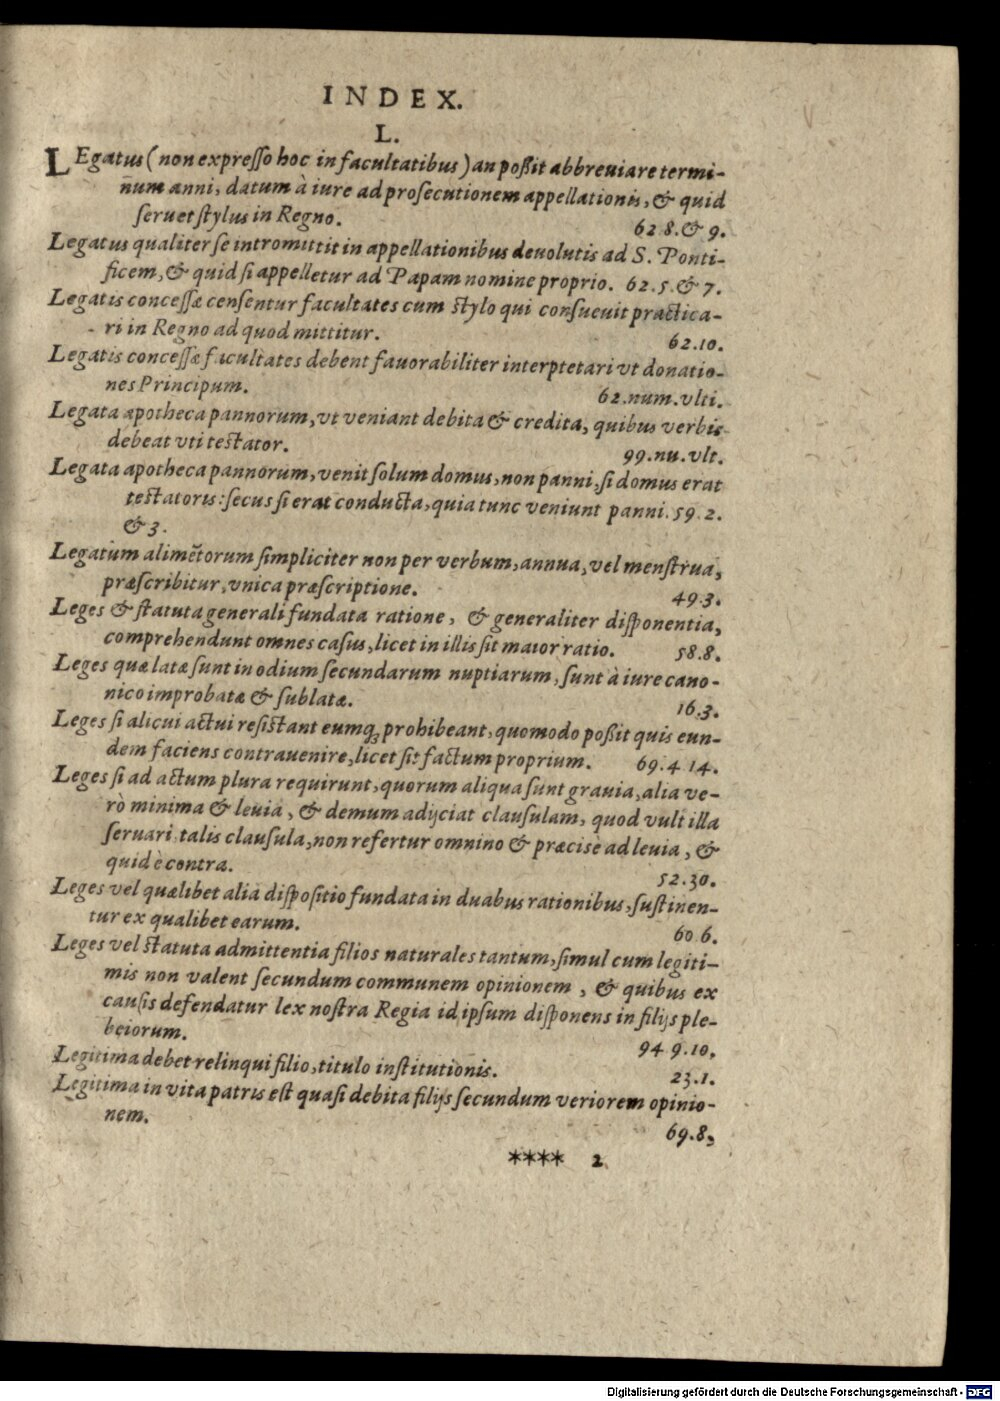 INDEX.
L.
LEgatus (non expresso hoc in facultatibus) an poßit abbreuiare termi-
num anni, datum à iure ad prosecutionem appellationis, & quid
seruet stylus in Regno. 62 8. & 9.
Legatus qualiter se intromittit in appellationibus deuolutis ad S. Ponti-
ficem, & quid si appelletur ad Papam nomine proprio. 62. 5. & 7.
Legatis concessæ censentur facultates cum stylo qui consueuit practica-
ri in Regno ad quod mittitur. 62.10.
Legatis concessæ facultates debent fauorabiliter interptetari vt donatio-
nes Principum. 62.num.vlti.
Legata apotheca pannorum, vt veniant debita & credita, quibus verbis
debeat vti testator. 99.nu.vlt.
Legata apotheca pannorum, venit solum domus, non panni, si domus erat
testatoris: secus si erat conducta, quia tunc veniunt panni. 59. 2.
& 3.
Legatum alimẽtorum simpliciter non per verbum, annua, vel menstrua,
præscribitur, vnica præscriptione. 49.3.
Leges & statuta generali fundata ratione, & generaliter disponentia,
comprehendunt omnes casus, licet in illis sit maior ratio. 58.8.
Leges quæ latæ sunt in odium secundarum nuptiarum, sunt à iure cano-
nico improbatæ & sublatæ. 16.3.
Leges si alicui actui resistant eumq; prohibeant, quomodo poßit quis eun-
dem faciens contrauenire, licet sit factum proprium. 69.4 14.
Leges si ad actum plura requirunt, quorum aliqua sunt grauia, alia ve-
rò minima & leuia, & demum adijciat clausulam, quod vult illa
seruari talis clausula, non refertur omnino & præcisè ad leuia, &
quid è contra. 52.30.
Leges vel quælibet alia dispositio fundata in duabus rationibus, sustinen-
tur ex qualibet earum. 60 6.
Leges vel statuta admittentia filios naturales tantum, simul cum legiti-
mis non valent secundum communem opinionem, & quibus ex
causis defendatur lex nostra Regia id ipsum disponens in filijs ple-
beiorum. 94 9.10.
Legitima debet relinqui filio, titulo institutionis. 23.1.
Legitima in vita patris est quasi debita filijs secundum veriorem opinio-
nem. 69.8.
**** 2
Digitalisierung gefördert durch die Deutsche Forschungsgemeinschaft - DFG